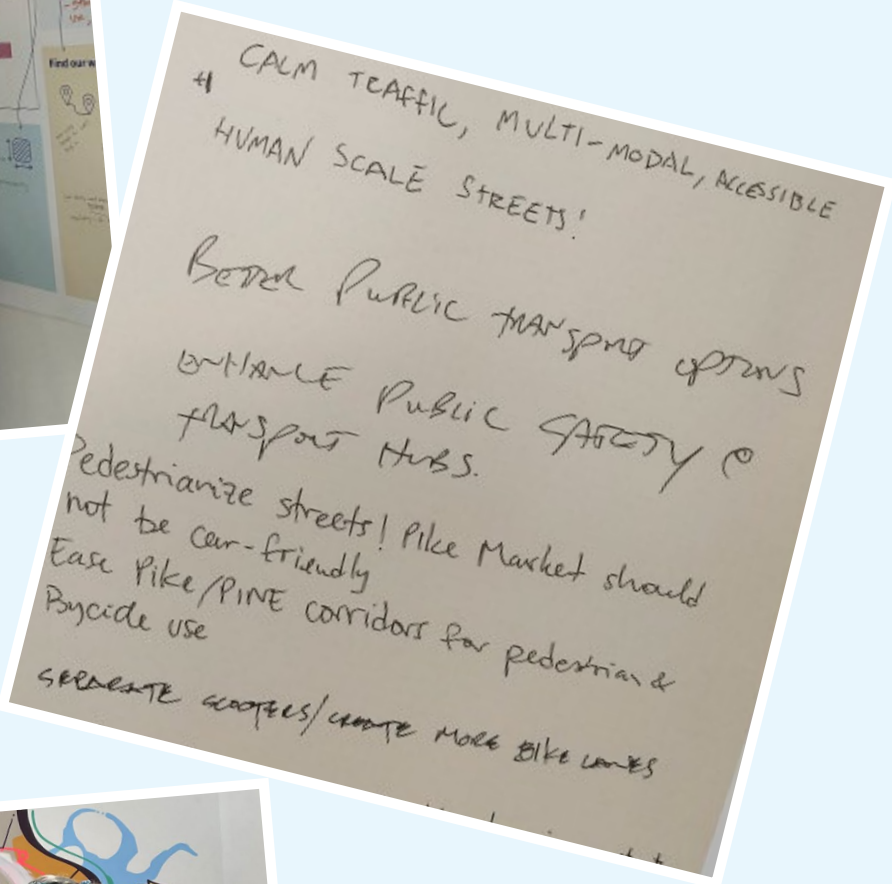 Find our w
CALM TRAFFIC, MULTI-MODAL, ACCESSIBLE
+1
HUMAN SCALE STREETS!
BETTER PUBLIC TRANSPORT OPTIONS
ENHANCE PUBLIC SAFETY @
TRANSPORT HUBS.
Pedestrianize streets! Pike Market should
not be car-friendly
Ease Pike/PINE corridors for pedestrian &
Bycicle use
SEPARATE SCOOTERS/CREATE MORE BIKE LANES